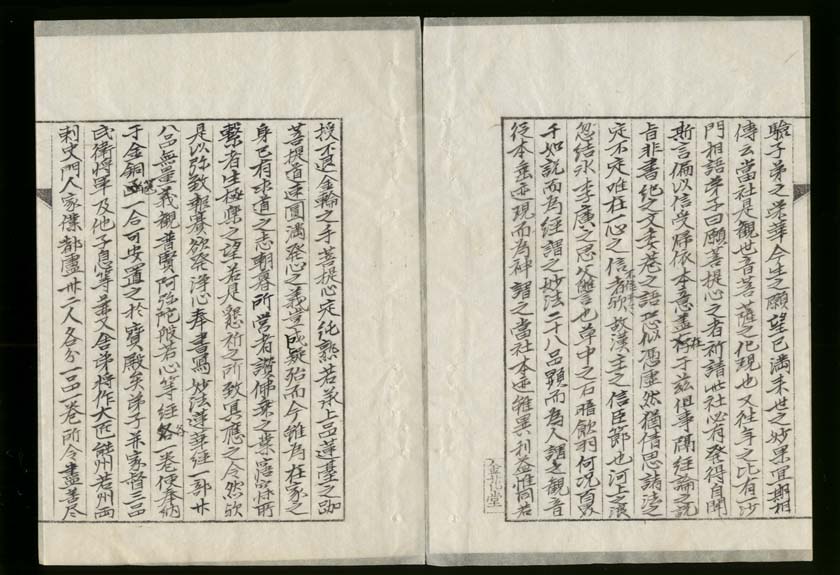 驗子弟之榮華今生之願望已滿来世之妙果宜期相
傳云當社是觀世音菩薩之化現也又往年之比有沙
門相語弟子曰願菩提心之者祈請此社必有發得自聞
斯言偏以信受歸依本意盖存于茲但事隔經論之說
旨非書紀之文委巷之語恐似憑虛然猶倩思諸法之
定不定唯在一心之信者歟故漢主之信臣節也河上之浪
忽結氷李廣之思父讎也草中之石暗飲羽何况百界
千如說而為經謂之妙法二十八品顕而為人謂之觀音
從本垂迹現而為神謂之當社本迹雖異利益惟同若
金花堂
授不退金輪之手菩提心定純熟若承上品蓮臺之跏
菩提道速圓滿發心之義豈成疑殆而今雖為在家之
身已有求道之志朝暮所営者讃佛乗之業寤寐所
繫者生極樂之望若是懇祈之所致冥應之令然歟
是以弥致報賽欲發浄心奉書寫妙法蓮華經一部廿
八品無量義觀普賢阿弥陀般若心等經各一卷便奉納
于金銅篋一合可安置之於寶殿矣弟子并家督三品
武衛將軍及他子息等兼又舍弟將作大匠能州若州両
刺史門人家僕都盧卅二人各分一品一卷所令盡善尽